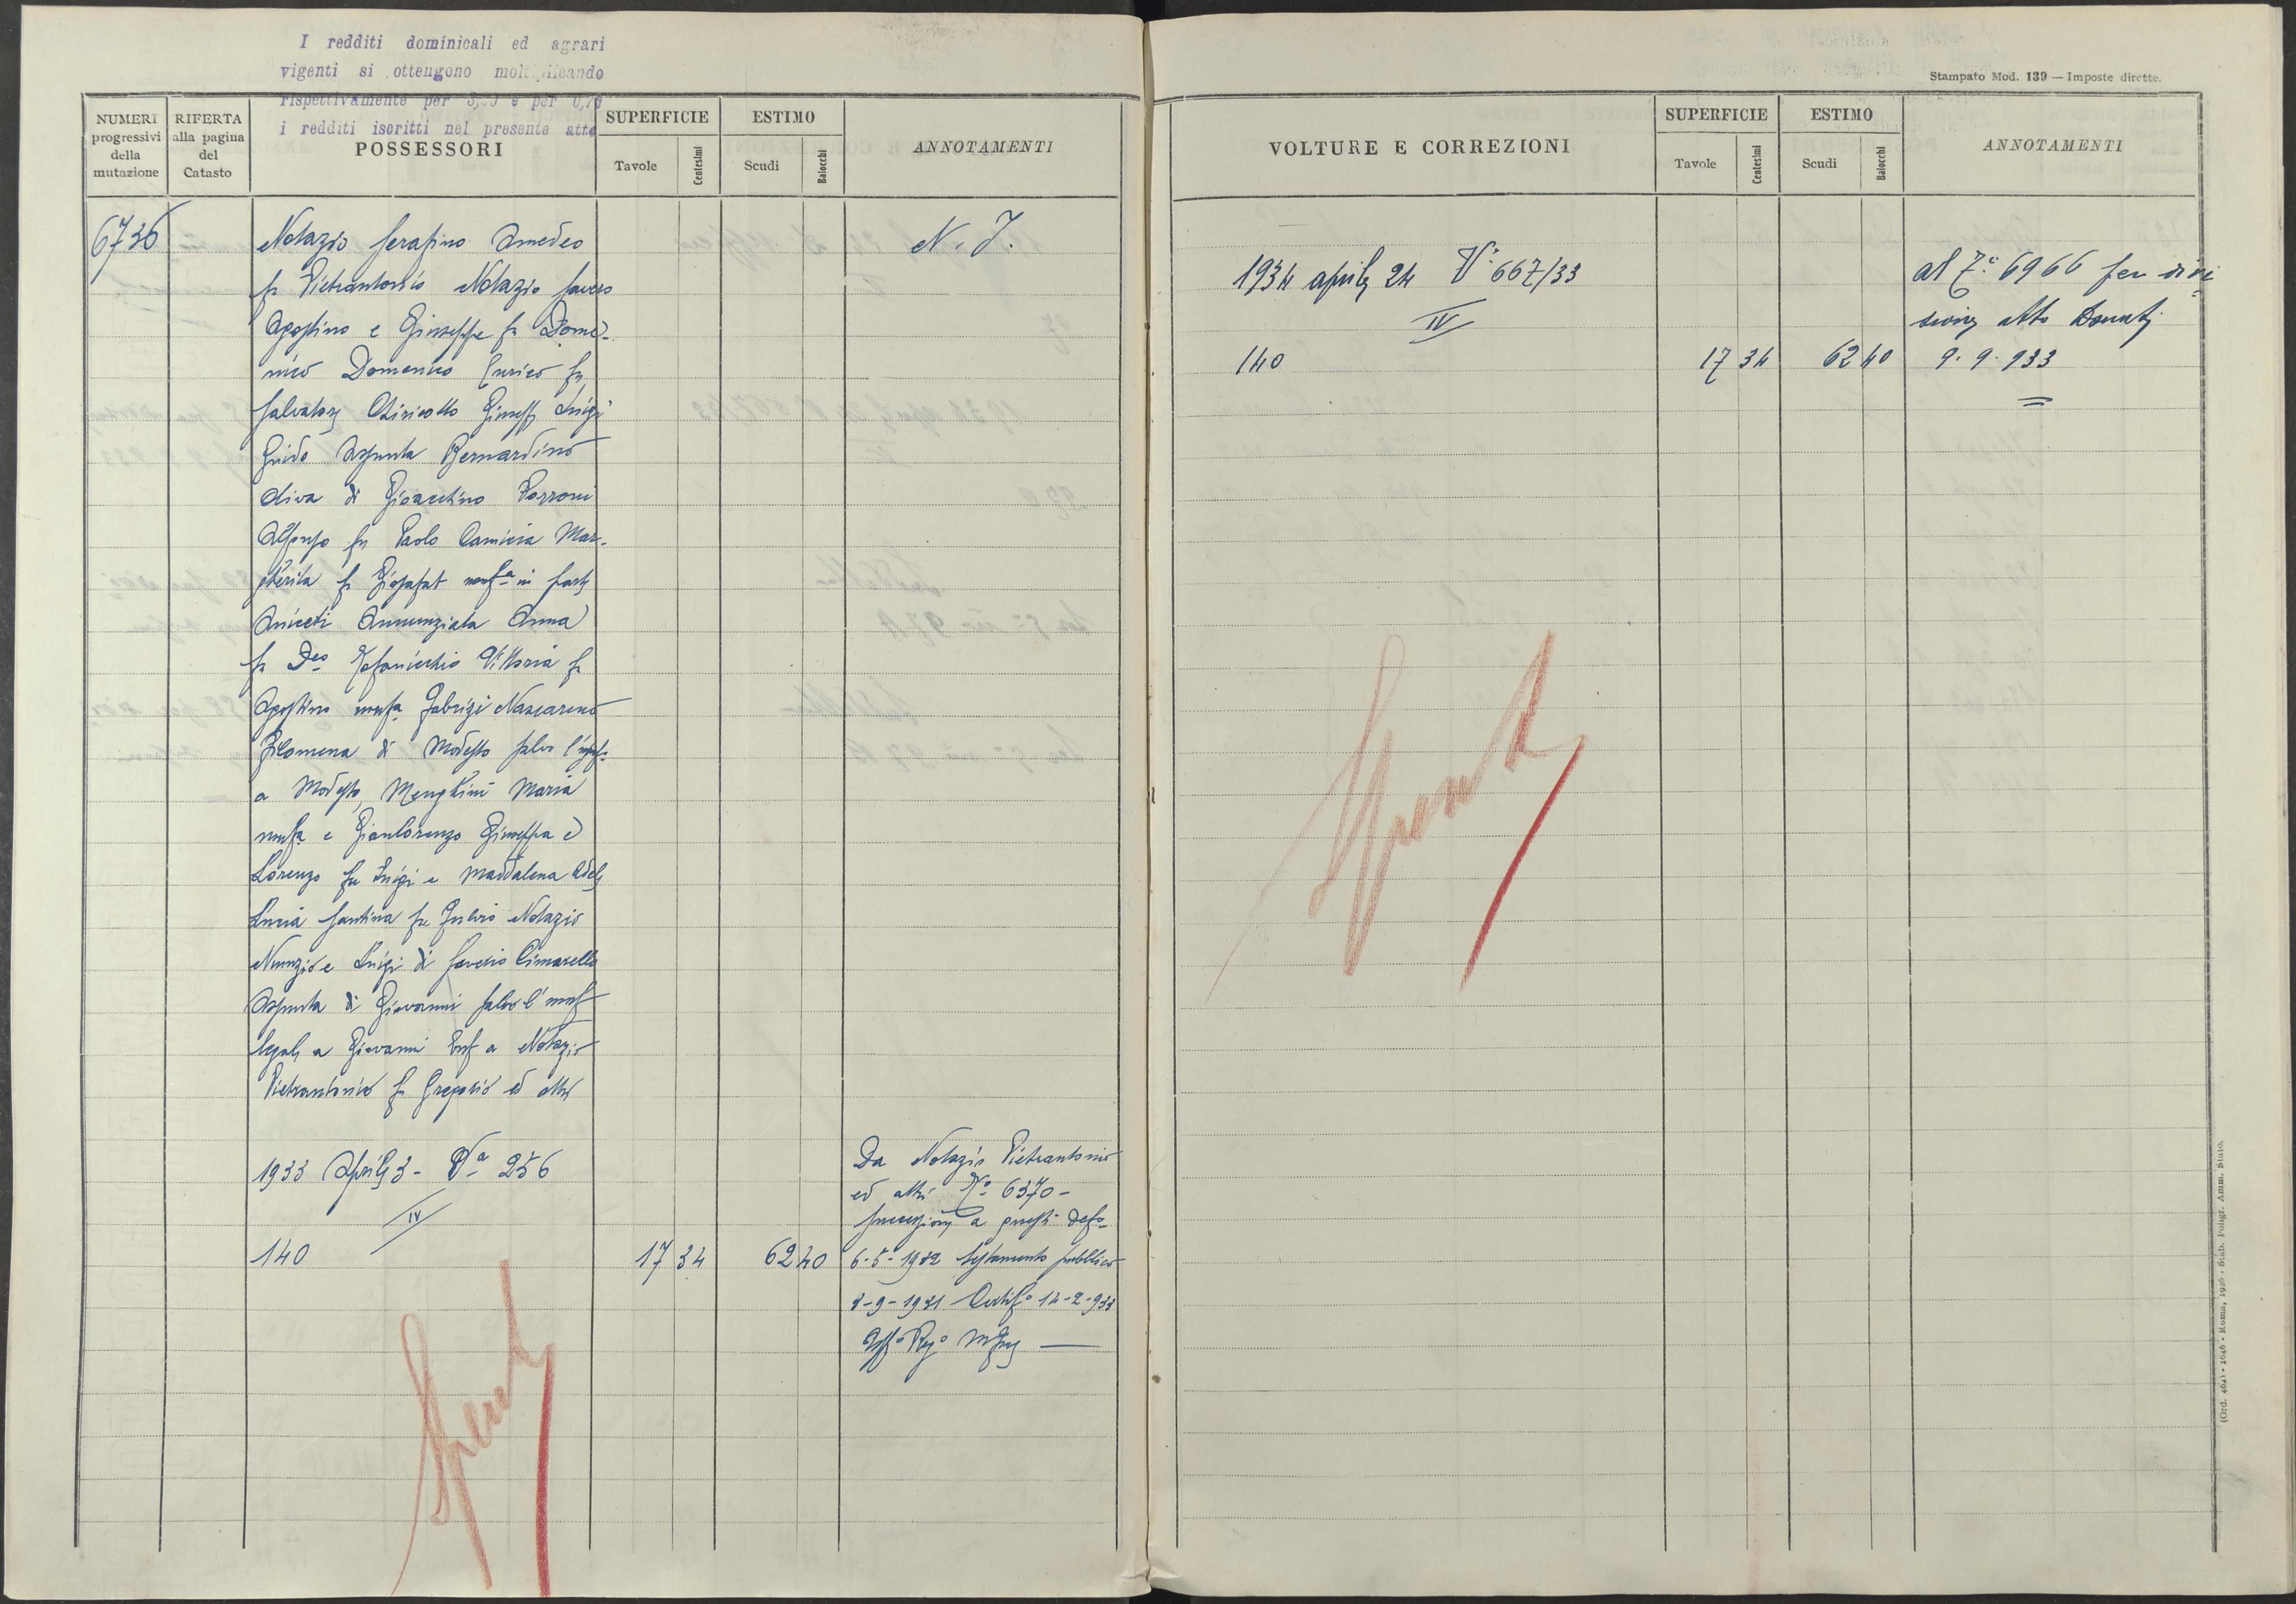 I redditi dominicali ed agrari
vigenti si ottengono moltiplicando
rispettivamente per e per
i redditi iscritti nel presente atto
NUMERI progressivi della mutazione
RIFERTA alla pagina del Catasto
POSSESSORI
SUPERFICIE
Tavole
Centesimi
ESTIMO
Scudi
Baiocchi
ANNOTAMENTI
6736
Notazio Serafino Amedeo
fu Pietrantonio Notazio Saverio
Agostino e Giuseppe fu Dome-
nico Domenico Enrico fu
Salvatore Chiricotto Giuseppe Luigi
Guido Assunta Bernardino
di Gioacchino
Alfonso fu Paolo Camicia Mar-
gherita fu Giosafat in parte
Aniceti Annunziata Anna
fu Dco Vittoria fu
Agostino Fabrizi Nazareno
Filomena di Modesto salvo
a Modesto, Menghini Maria
e Gianlorenzo Giuseppa e
Lorenzo fu Luigi e Maddalena Adele
Lucia Santina fu Fulvio Notazio
Nunzio e Luigi di Saverio Cimarello
Assunta di Giovanni salvo l'usuf
legale a Giovanni Usuf a Notazio
Pietrantonio fu Gregorio ed altri
N. I.
1933 Aprile 3 - Va 256
IV
140
17 34
62 40
Da Notazio Pietrantonio
ed altri No 6370 -
successione a questi defo
6-5-1932 testamento pubblico
8-9-1931 Certifo 14-2-933
Uffo Rego
Spenta
Stampato Mod. 139 — Imposte dirette.
VOLTURE E CORREZIONI
SUPERFICIE
Tavole
Centesimi
ESTIMO
Scudi
Baiocchi
ANNOTAMENTI
1934 aprile 24 Va 667/33
IV
140
17 34
62 40
al 6966 per divi
sione atto Donati
9.9.933
Spenta
(Ord. 464) - 1646 - Roma, 1926 - Stab. Poligr. Amm. Stato.